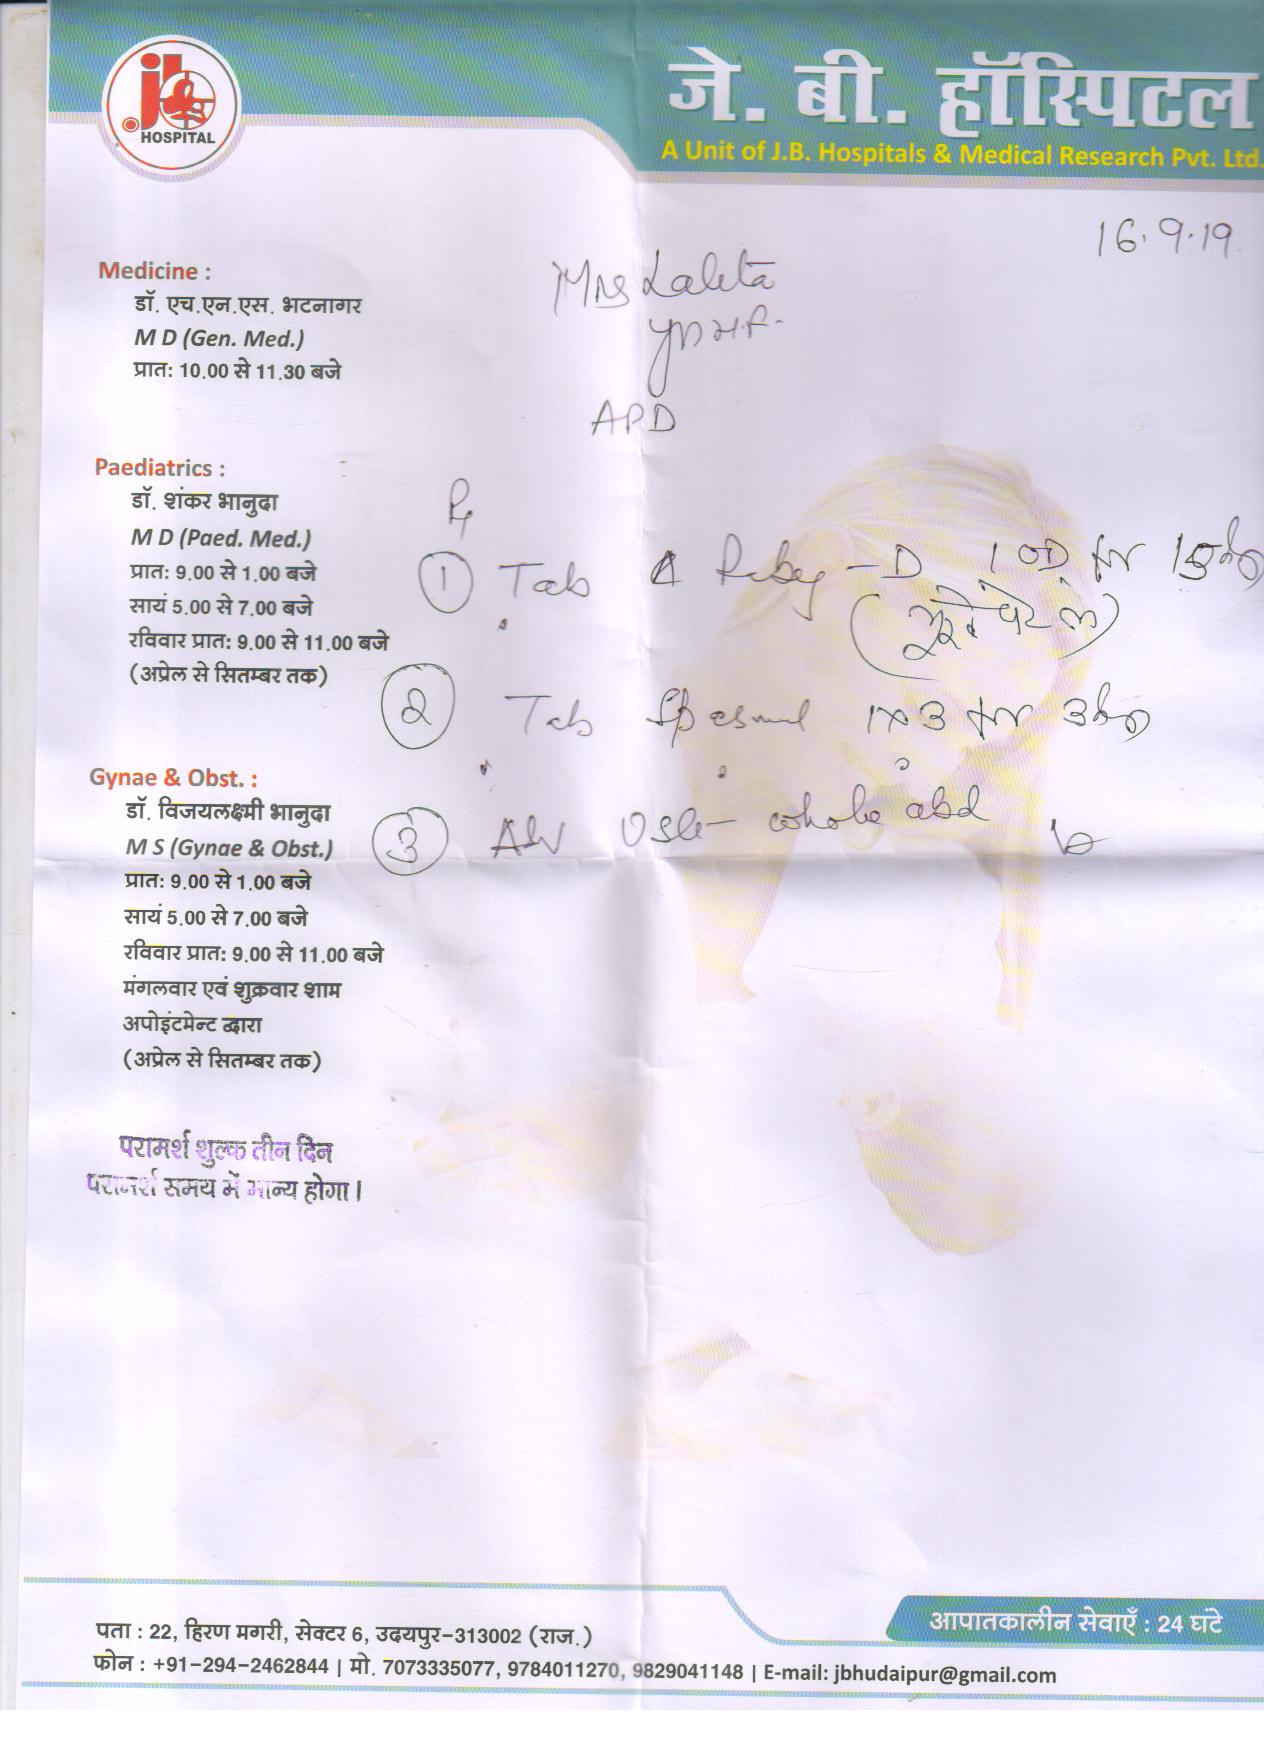 jb
HOSPITAL
जे. बी. हॉस्पिटल
A Unit of J.B. Hospitals & Medical Research Pvt. Ltd.
16.9.19
Mrs Lalita
APD
Medicine :
डॉ. एच.एन.एस. भटनागर
M D (Gen. Med.)
प्रात: 10.00 से 11.30 बजे
Paediatrics :
डॉ. शंकर भानुदा
M D (Paed. Med.)
प्रात: 9.00 से 1.00 बजे
सायं 5.00 से 7.00 बजे
रविवार प्रात: 9.00 से 11.00 बजे
(अप्रेल से सितम्बर तक)
Gynae & Obst. :
डॉ. विजयलक्ष्मी भानुदा
M S (Gynae & Obst.)
प्रात: 9.00 से 1.00 बजे
सायं 5.00 से 7.00 बजे
रविवार प्रात: 9.00 से 11.00 बजे
मंगलवार एवं शुक्रवार शाम
अपोइंटमेन्ट द्वारा
(अप्रेल से सितम्बर तक)
परामर्श शुल्क तीन दिन
परामर्श समय में मान्य होगा।
Rx
1 Tab - D 1 OD for 15
2 Tab 1x3 for 3
3 whole abd
आपातकालीन सेवाएँ : 24 घंटे
पता : 22, हिरण मगरी, सेक्टर 6, उदयपुर-313002 (राज.)
फोन : +91-294-2462844 | मो. 7073335077, 9784011270, 9829041148 | E-mail: jbhudaipur@gmail.com